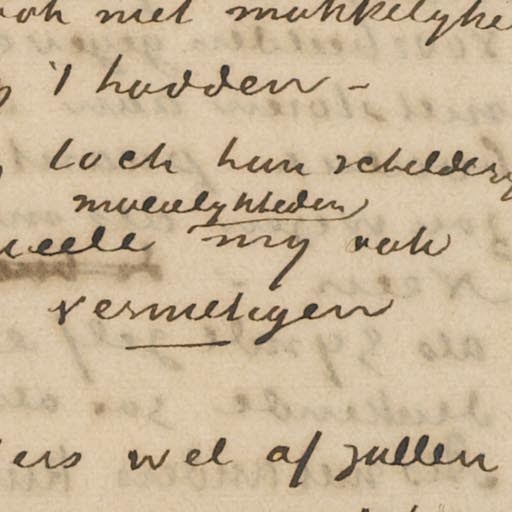 ook niet makkelyke
't hadden –
toch hun schildery
moeielykheden
my ook
vermeligen
ers wel af zullen